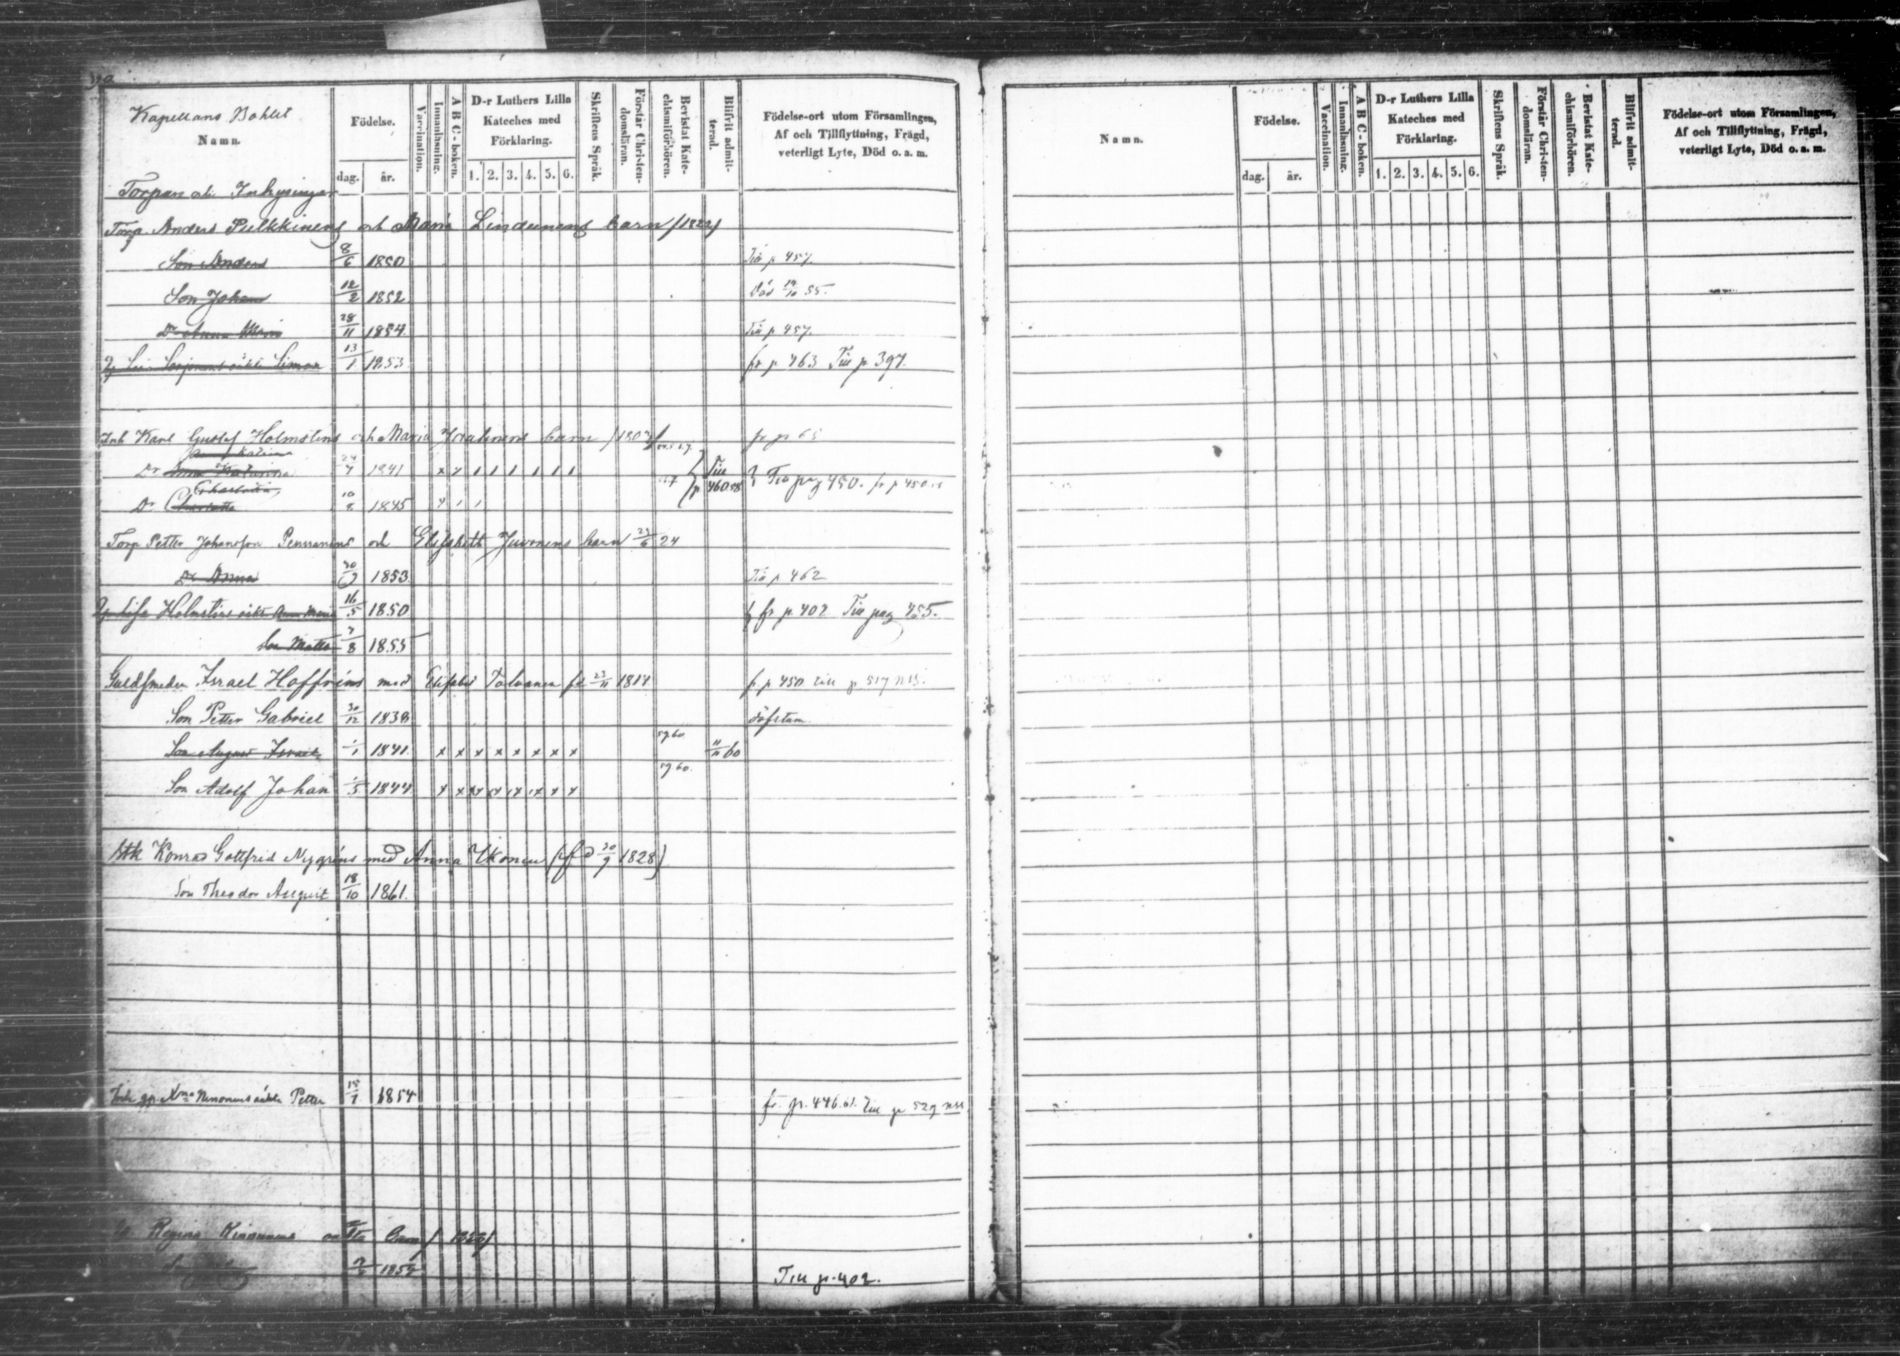 Kapellans Bohlet
Namn.
Födelse.
dag. år.
Vaccination.
Innanläsning.
ABC-boken.
D-r Luthers Lilla Kateches med Förklaring.
1. 2. 3. 4. 5. 6.
Skriftens Språk.
Förstår Christendomsläran.
Bevistat Katechismiförhören.
Blifvit admitterad.
Födelse-ort utom Församlingen, Af och Tillflyttning, Frägd, veterligt Lyte, Död o. a. m.
Torpare och Inhysingar
Torp. Anders Pulkkinens och Maria Lindemans barn /1822/
Son Anders 8/6 1850 Till p 457.
Son Johan 12/2 1852 Död 55.
Dr Anna Maria 28/11 1854 Till p 457.
Simon 13/1 1853 fr p 463 Till p 397.
Inh Karl Gustaf Holmstens och Maria barn /1807/ fr p 65
Dr Anna Katarina 24/4 1841 x x 1 1 1 1 1 1 Till Till pag 450. fr p 450
Dr Charlotta 10/8 1845
Torp Petter Johansson Pennanens och Elisabeth Juvonens barn 23/6 24
Dr Anna 30/9 1853 Till p 462
Lisa Holmstens oäkta Anna Maria 16/5 1850 fr p. 402 Till pag 455.
Son Matts 7/8 1855
Guldsmeden Israel Hoffréns med Elisabet Tolvanen fd 23/11 1814 fr p 450 till p 517
Son Petter Gabriel 30/12 1838 döfstum
Son August Israel 1/1 1841. x x x x x x x x 60
Son Adolf Johan 1/5 1844 x x x x x x x x 60.
Konrad Gottfrid Nygréns med Anna Ikonen (fd 30/9 1828)
Son Theodor August 18/10 1861.
Inh Nenonens oäkta Petter 15/1 1854 fr. p. 446. 61. till p 529
Regina Kinnunens oäkta barn
1852 Till p. 402.
Namn.
Födelse.
dag. år.
Vaccination.
Innanläsning.
ABC-boken.
D-r Luthers Lilla Kateches med Förklaring.
1. 2. 3. 4. 5. 6.
Skriftens Språk.
Förstår Christendomsläran.
Bevistat Katechismiförhören.
Blifvit admitterad.
Födelse-ort utom Församlingen, Af och Tillflyttning, Frägd, veterligt Lyte, Död o. a. m.